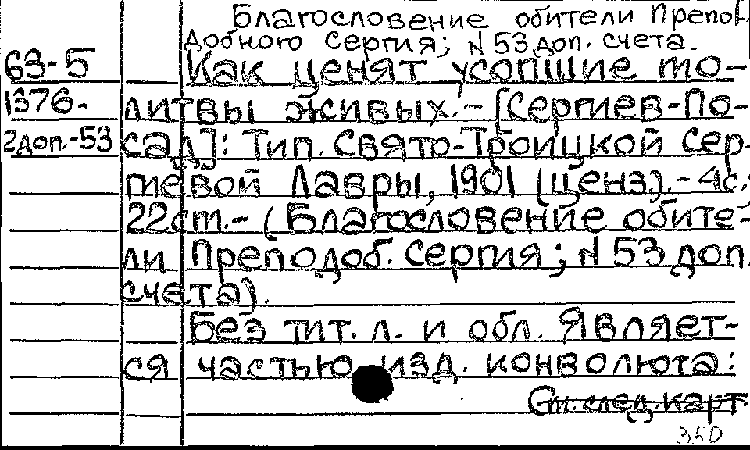 Благословение обители Препо-
добного Сергия; N 53 доп. счета.
63-5 Как ценят усопшие мо-
1376- литвы живых.- [Сергиев-По-
2доп.-53 сад]: Тип. Свято-Троицкой Сер-
гиевой Лавры, 1901 (ценз). - 4с.;
22см.- (Благословение обите-
ли Преподоб. Сергия; N 53 доп.
счета).
Без тит. л. и обл. Являет-
ся частью изд. конволюта:
См. след. карт
350